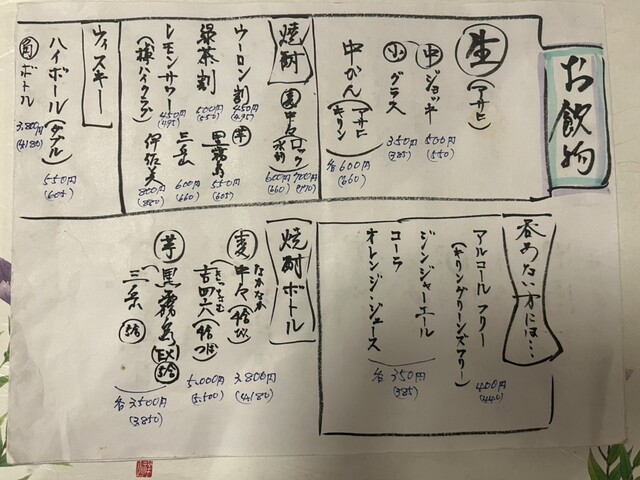 お飲物
生
(アサヒ)
中ジョッキ
500円
(550)
小グラス
350円
(385)
中かん(アサヒ キリン)
各600円
(660)
焼酎
麦中々ロック 水割
700円
(770)
600円
(660)
ウーロン割
450円
(495)
緑茶割
500円
(550)
レモンサワー
450円
(495)
(樽ハイクラブ)
芋黒霧島
550円
(605)
三岳
600円
(660)
伊佐美
800円
(880)
ウィスキー
ハイボール(ダブル)
550円
(605)
角ボトル
3,800円
(4,180)
呑めない方には…
アルコールフリー
(キリングリーンズフリー)
400円
(440)
ジンジャーエール
コーラ
オレンジ・ジュース
各350円
(385)
焼酎ボトル
なかなか
麦中々
3,800円
(4,180)
きっちょむ
吉四六
5,000円
(5,500)
芋黒霧島EX
三岳
各3,500円
(3,850)